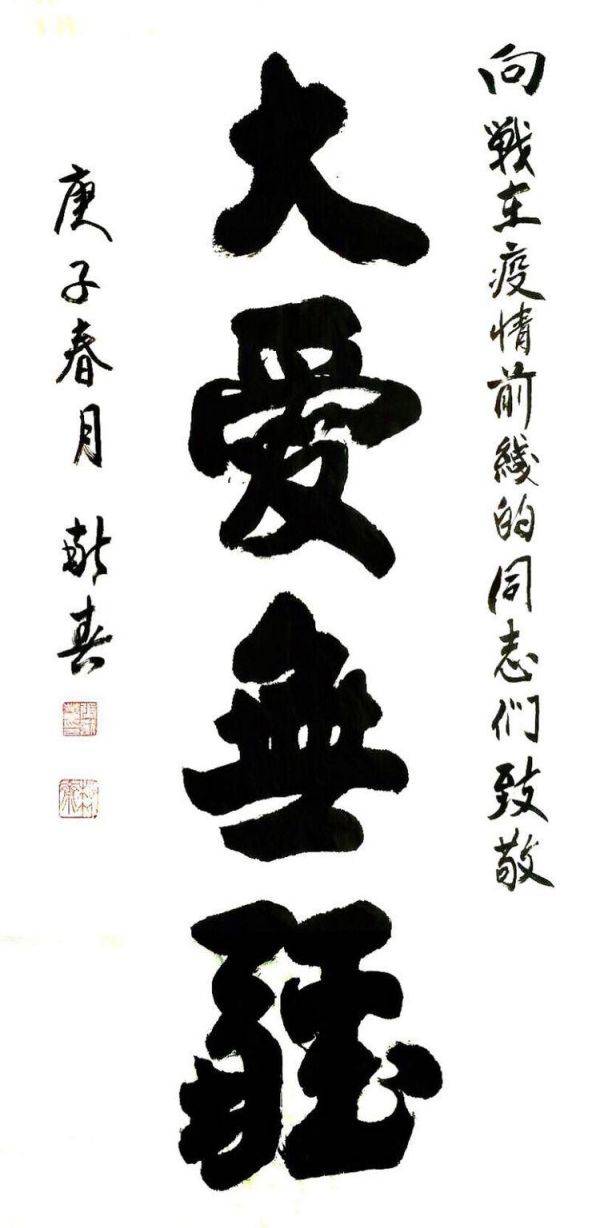 向戰在疫情前綫的同志们致敬
大愛無疆
庚子春月